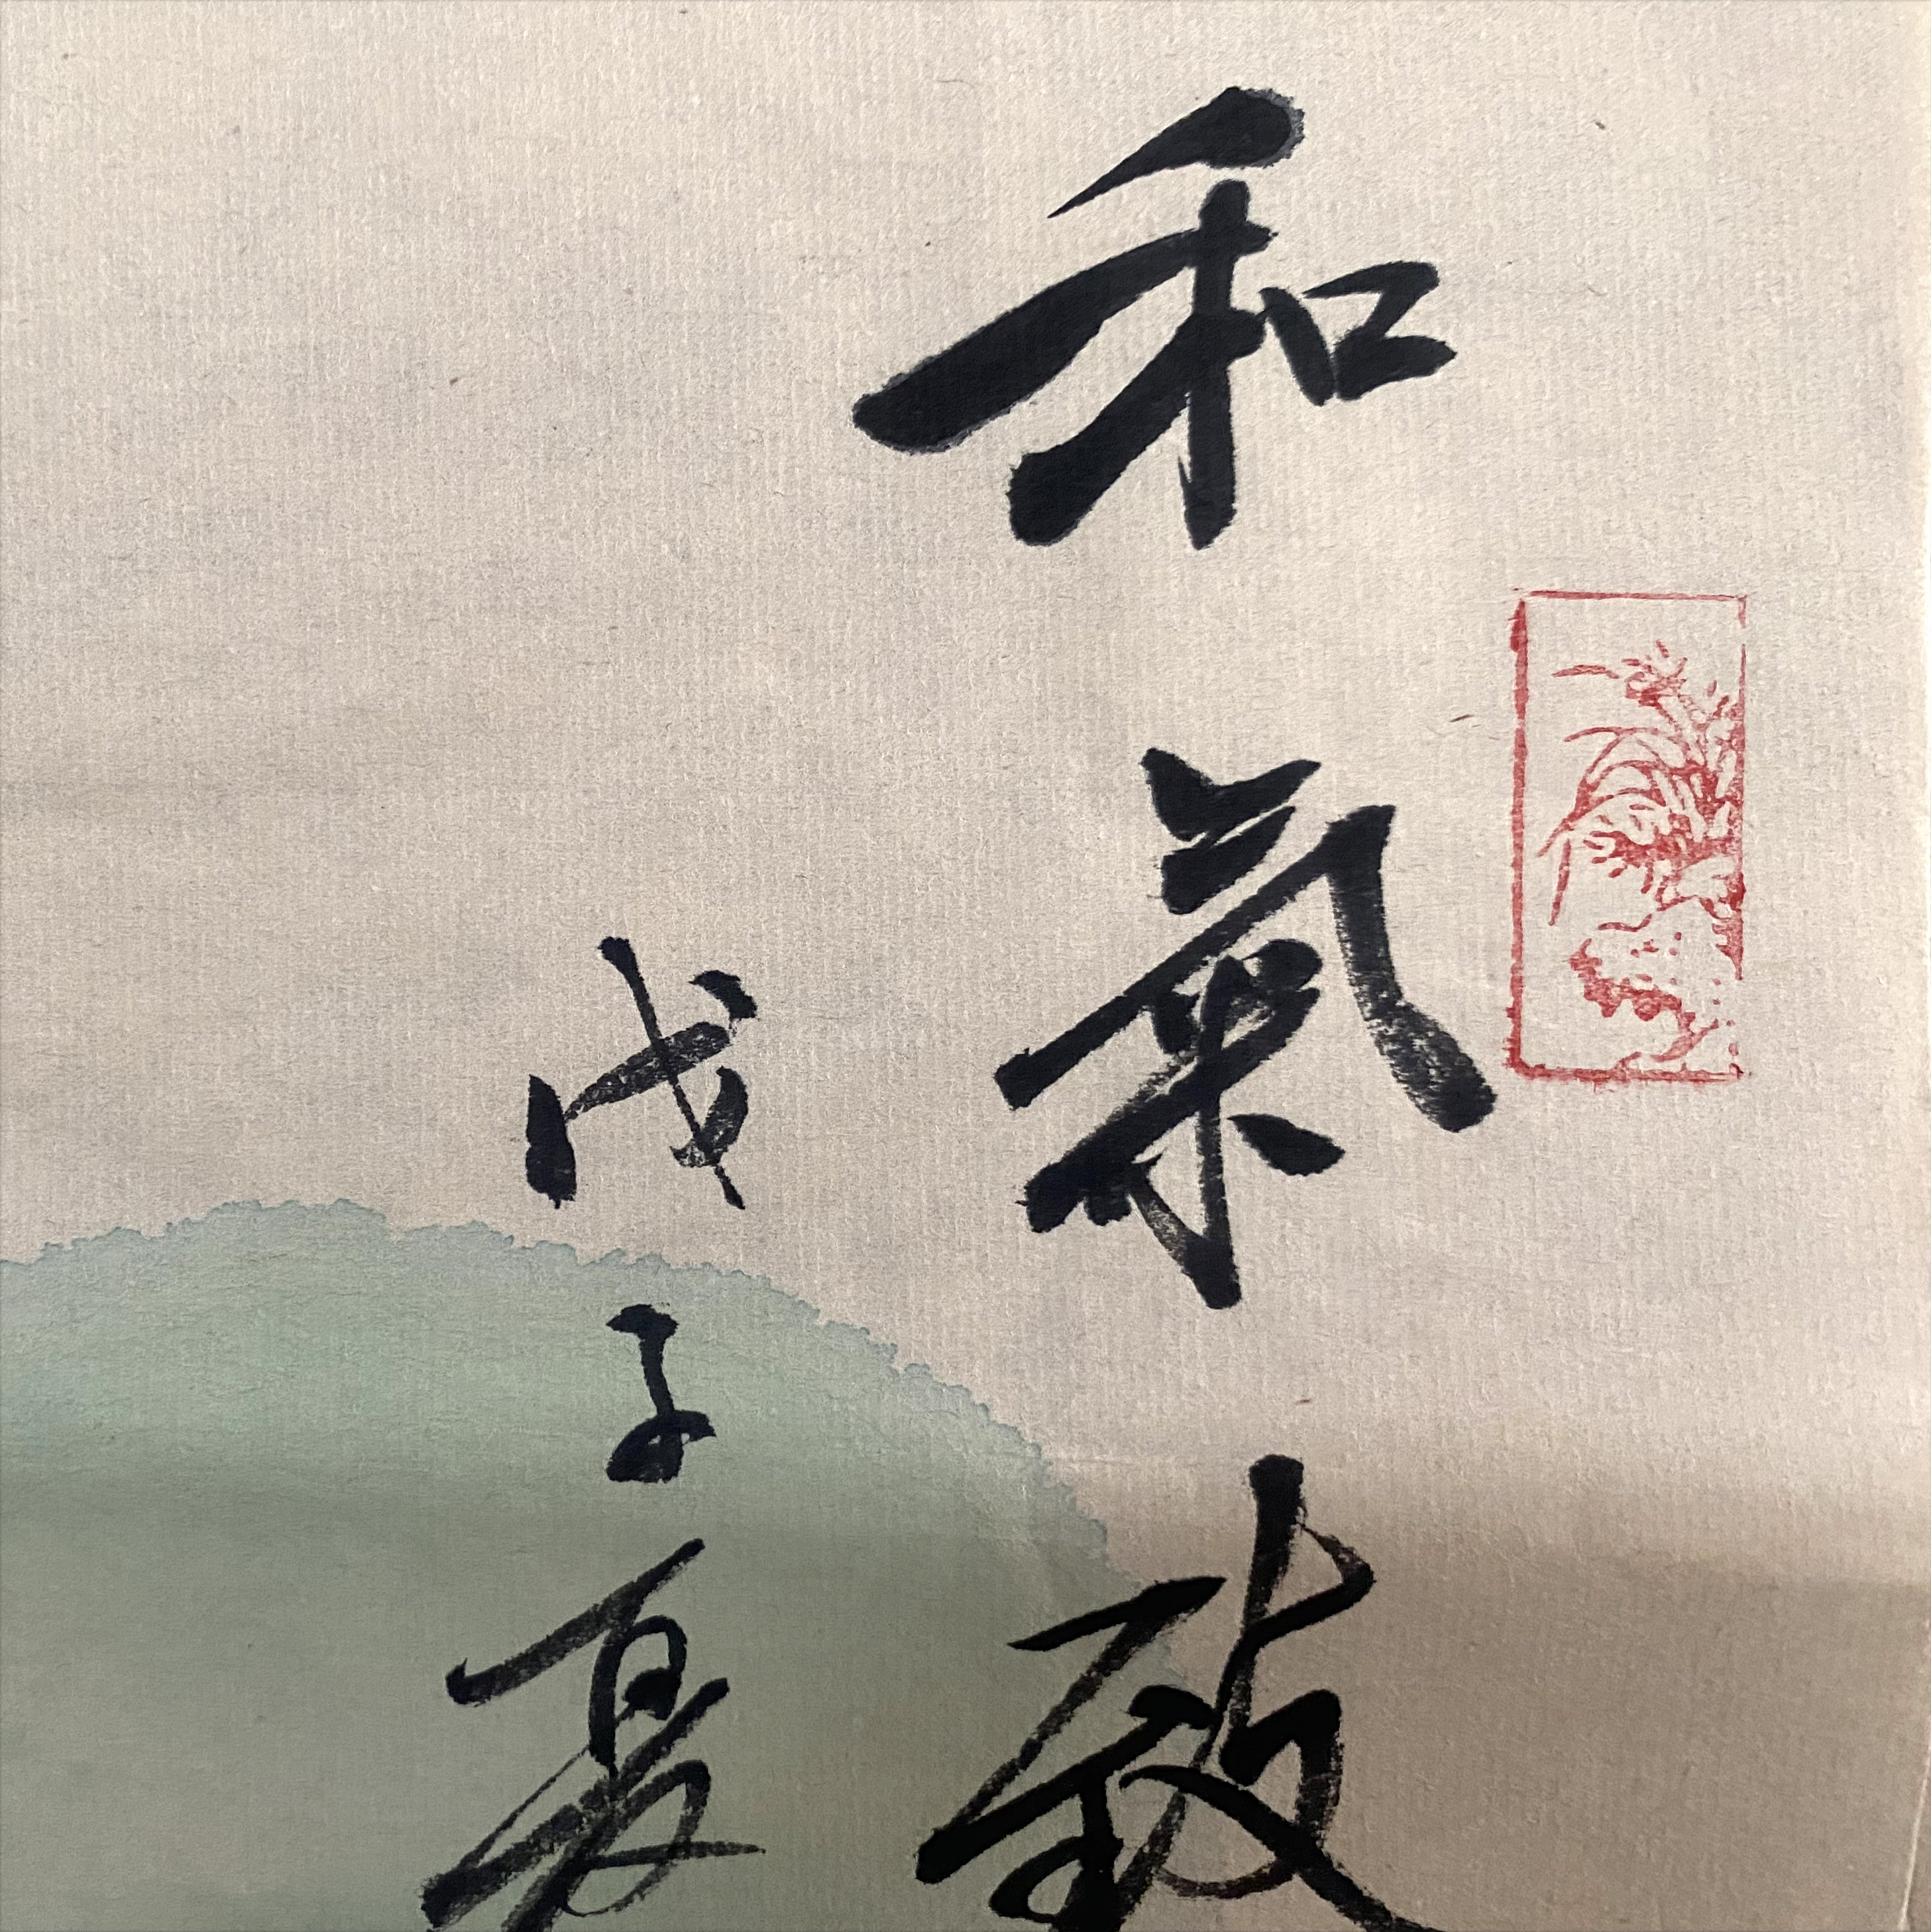 和氣致
戊子夏